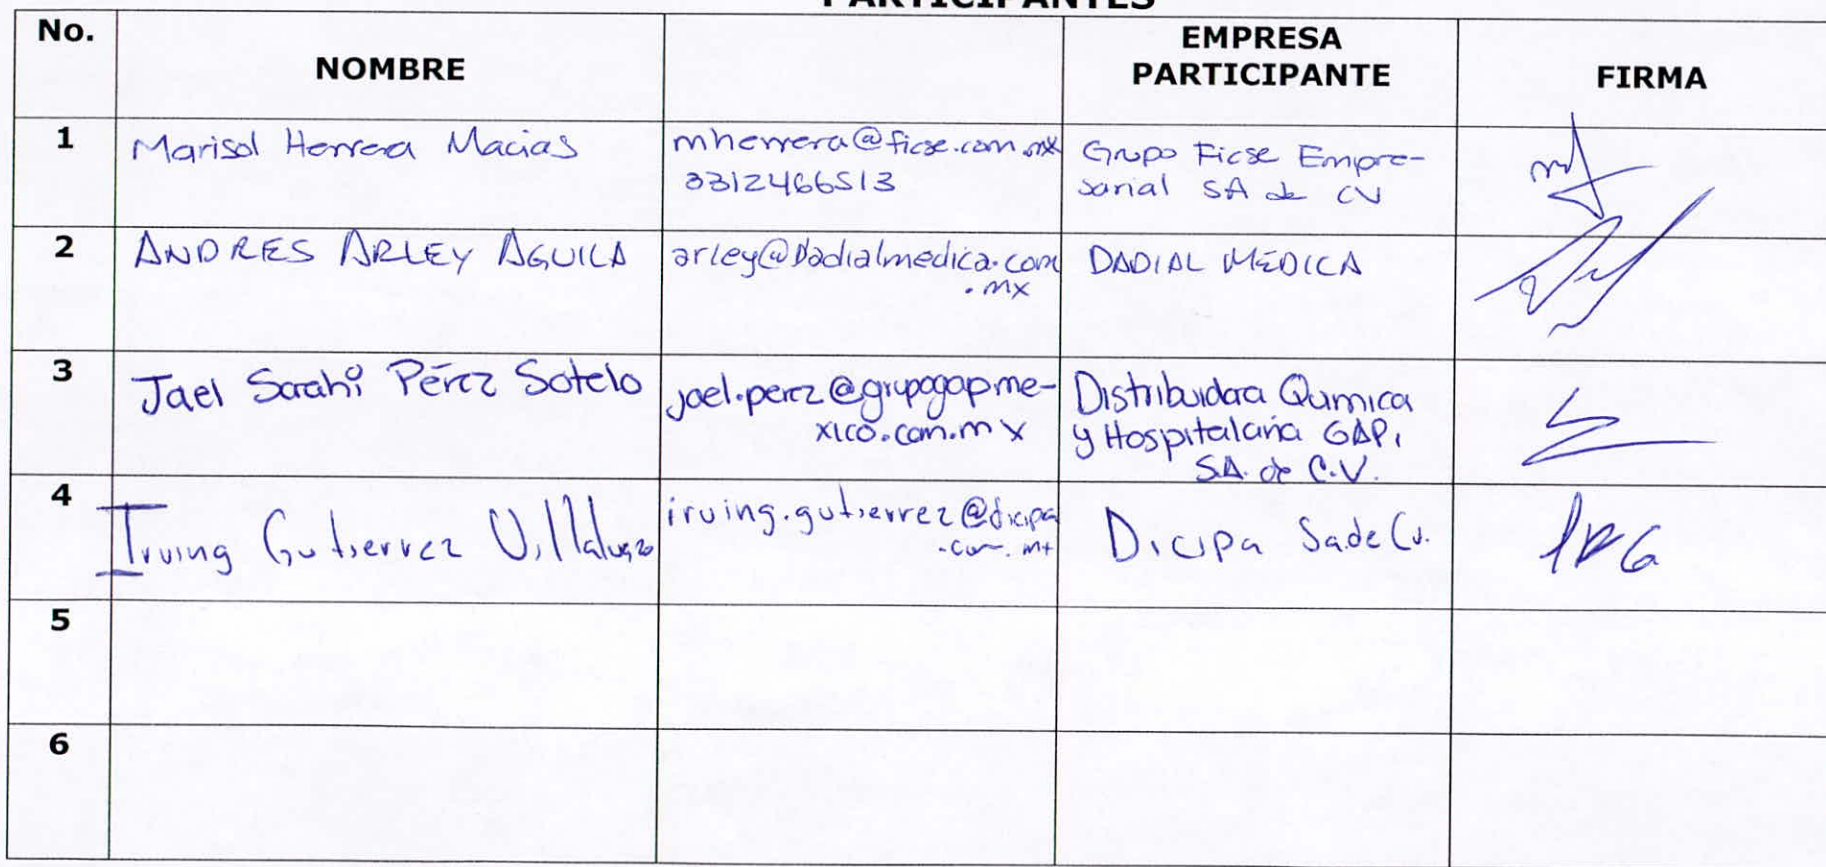 PARTICIPANTES
No.
NOMBRE
EMPRESA
PARTICIPANTE
FIRMA
1
Marisol Herrera Macias
mherrera@ficse.com.mx
3312466513
Grupo Ficse Empre-
sarial SA de CV
2
ANDRES ARLEY AGUILA
arley@Dadialmedica.com
.mx
DADIAL MEDICA
3
Jael Sarahi Pérez Sotelo
jael.perez@grupogapme-
xico.com.mx
Distribuidora Quimica
y Hospitalaria GAP,
S.A. de C.V.
4
Irving Gutierrez
irving.gutierrez@dicipa
.com.mx
Dicipa Sa.de Cv.
5
6